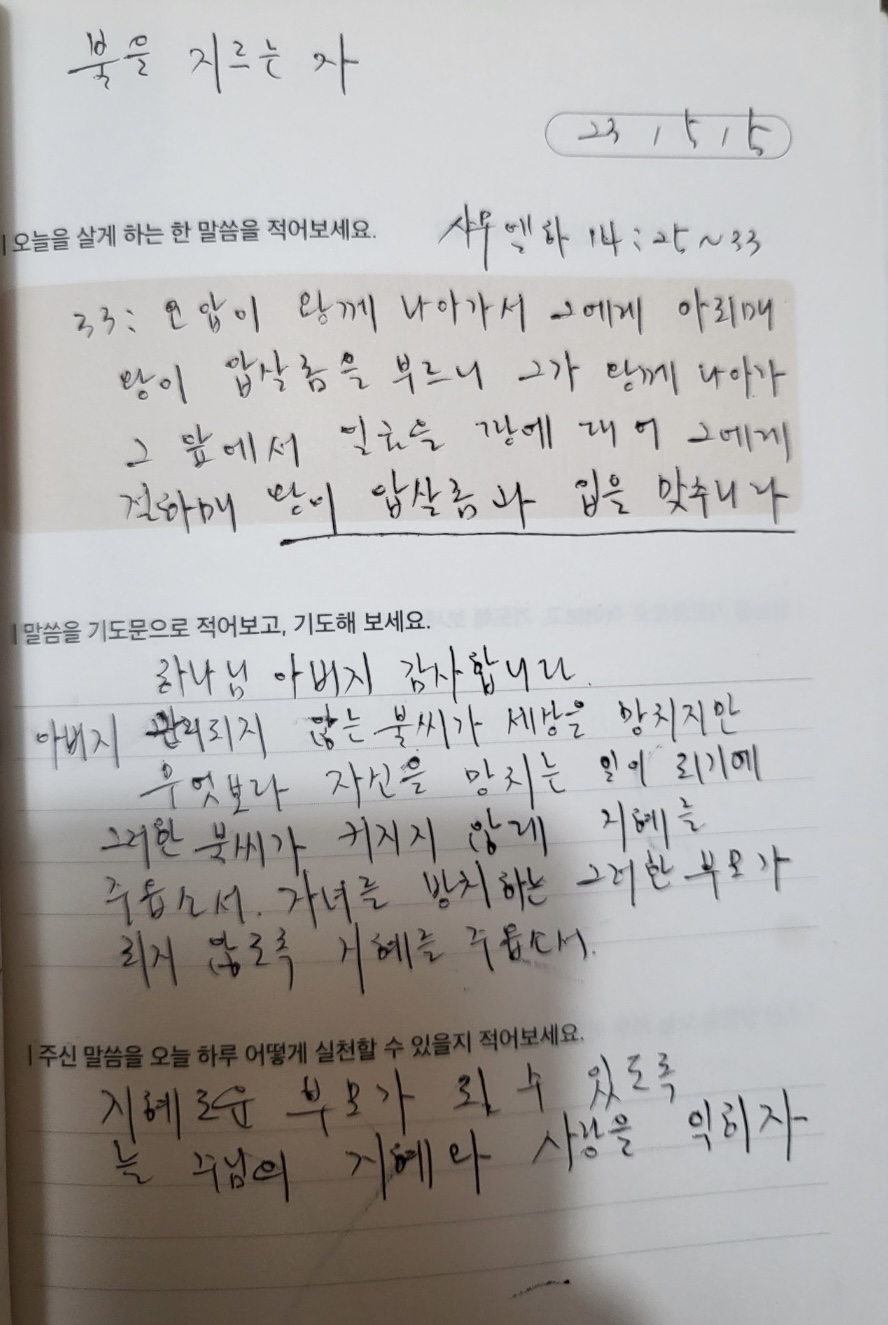 불을 지르는 자
23 / 5 / 5
| 오늘을 살게 하는 한 말씀을 적어보세요. 사무엘하 14:25~33
33: 요압이 왕께 나아가서 그에게 아뢰매
왕이 압살롬을 부르니 그가 왕께 나아가
그 앞에서 얼굴을 땅에 대어 그에게
절하매 왕이 압살롬과 입을 맞추니라
| 말씀을 기도문으로 적어보고, 기도해 보세요.
하나님 아버지 감사합니다.
아버지 관리되지 않는 불씨가 세상을 망치지만
무엇보다 자신을 망치는 일이 되기에
그러한 불씨가 커지지 않게 지혜를
주옵소서. 자녀를 방치하는 그러한 부모가
되지 않도록 지혜를 주옵소서.
| 주신 말씀을 오늘 하루 어떻게 실천할 수 있을지 적어보세요.
지혜로운 부모가 될 수 있도록
늘 주님의 지혜와 사랑을 익히자